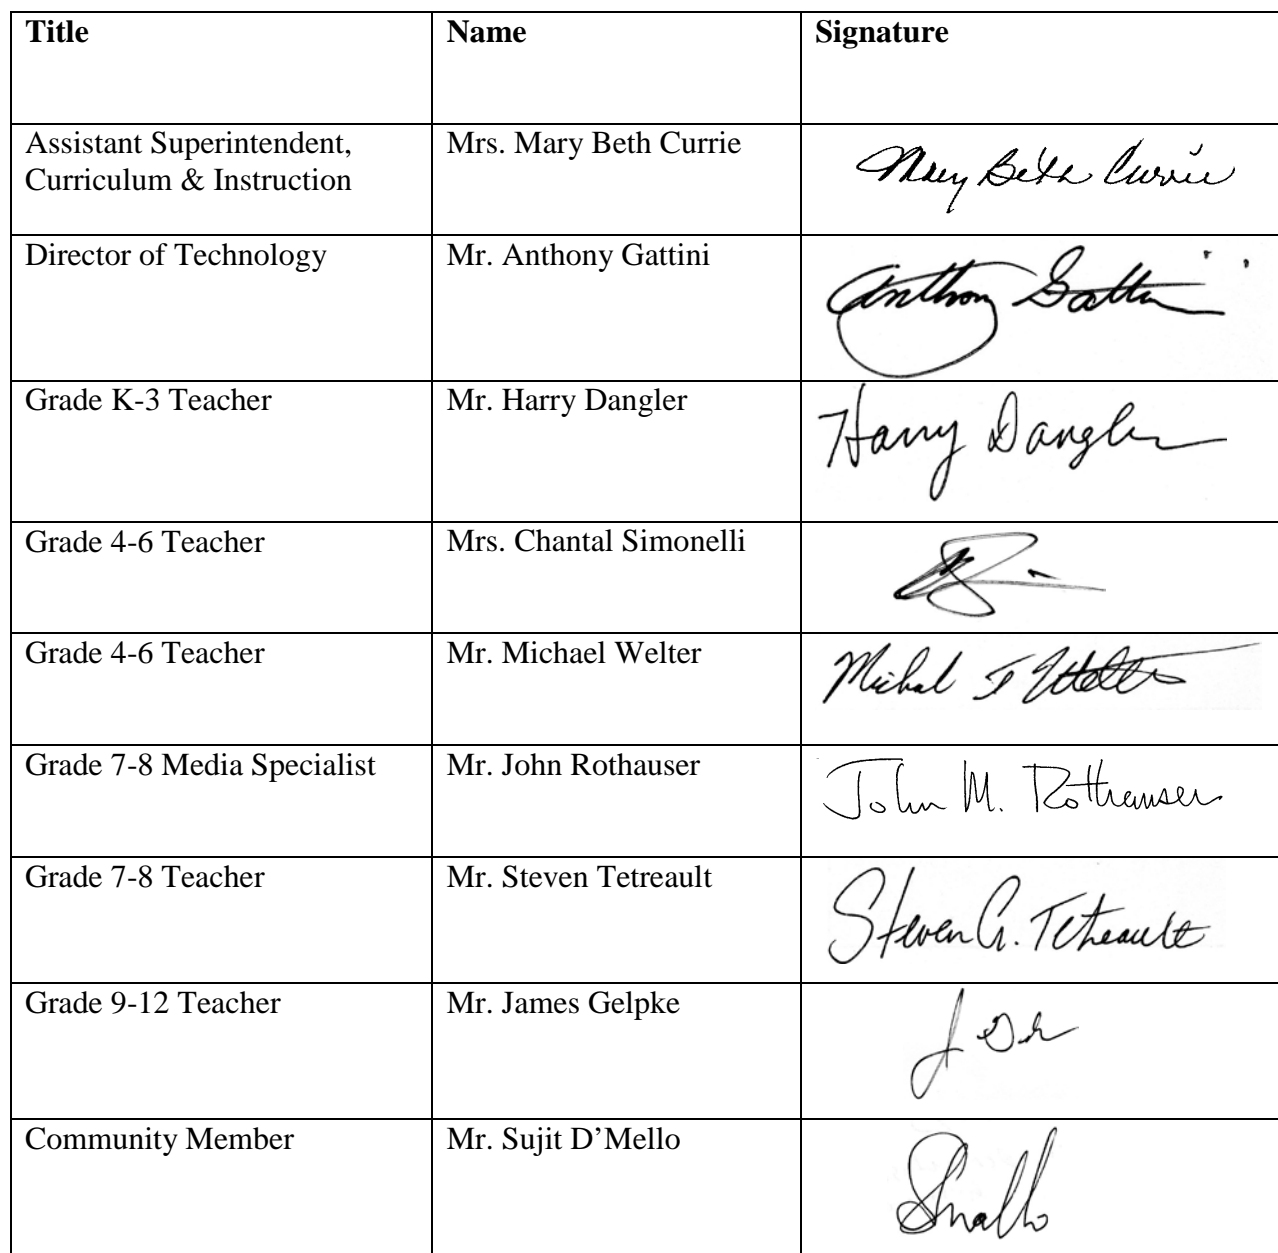 Title Name Signature
Assistant Superintendent, Mrs. Mary Beth Currie Mary Beth Currie
Curriculum & Instruction
Director of Technology Mr. Anthony Gattini Anthony Gattini
Grade K-3 Teacher Mr. Harry Dangler Harry Dangler
Grade 4-6 Teacher Mrs. Chantal Simonelli
Grade 4-6 Teacher Mr. Michael Welter Michael J Welter
Grade 7-8 Media Specialist Mr. John Rothauser John M. Rothauser
Grade 7-8 Teacher Mr. Steven Tetreault Steven G. Tetreault
Grade 9-12 Teacher Mr. James Gelpke
Community Member Mr. Sujit D’Mello